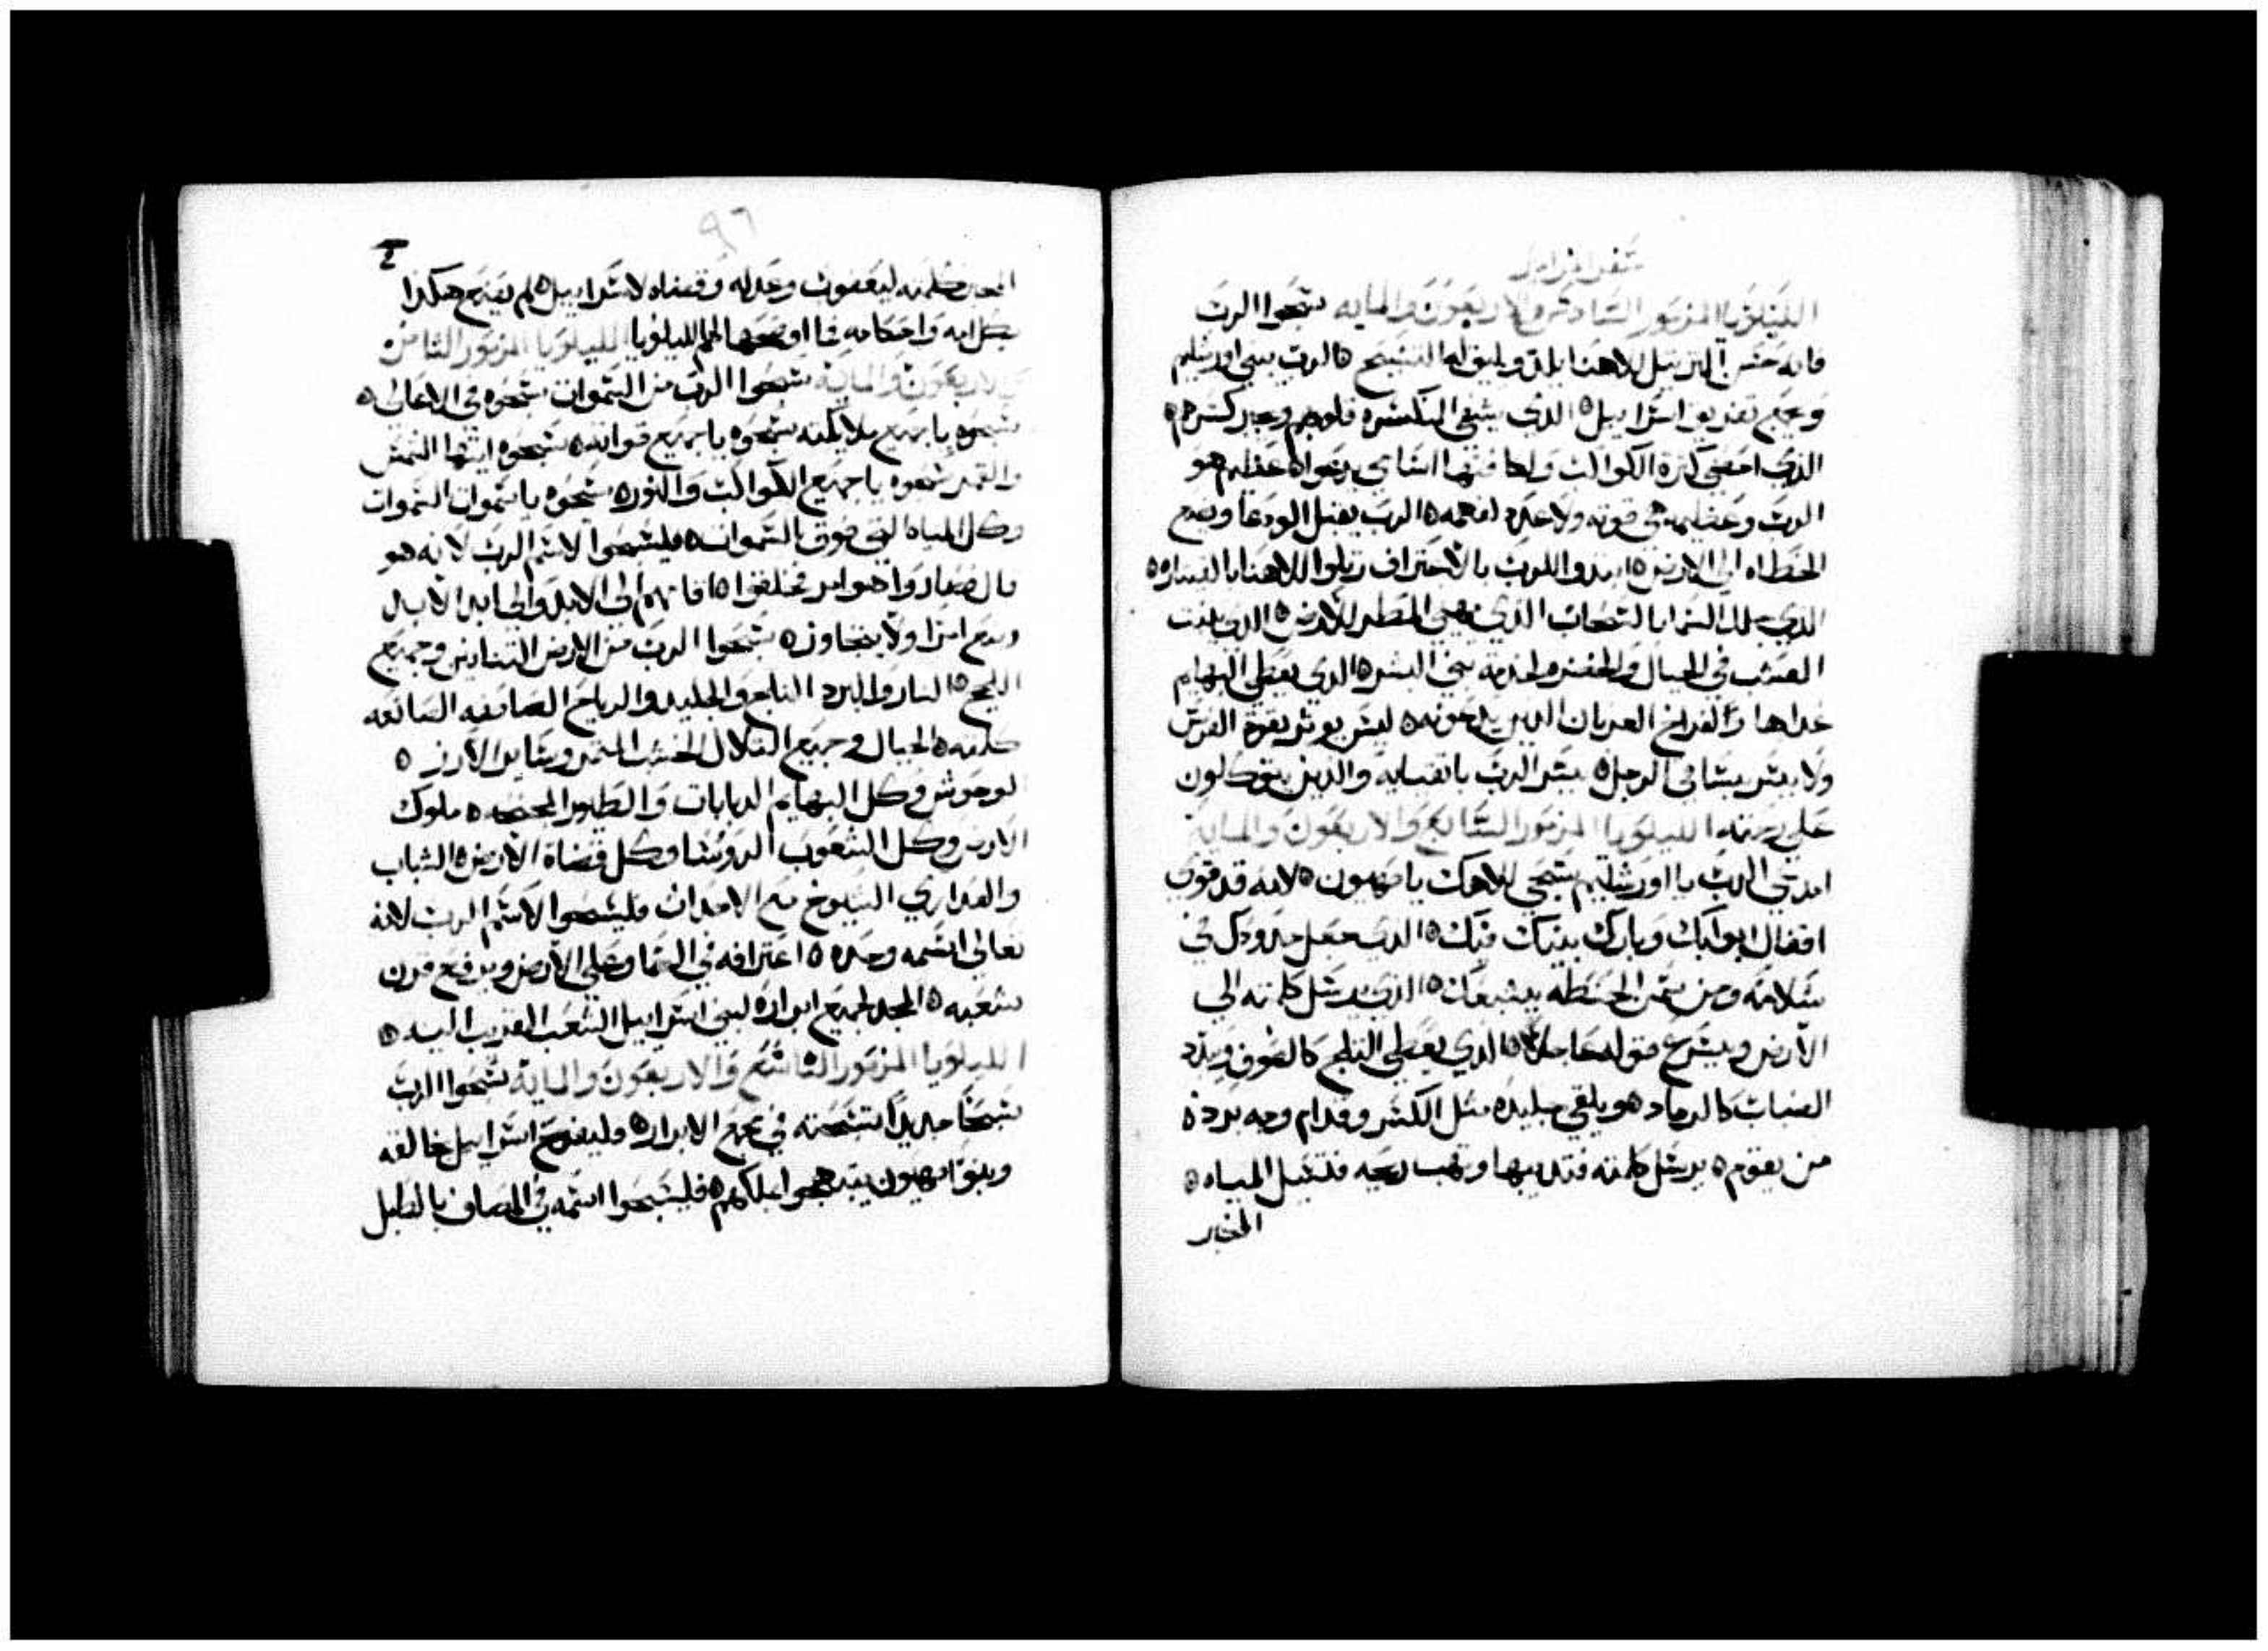 سفر المزامير
الليلويا المزمور السادس والاربعون والمايه سبحوا الرب
فانه حسن الترتيل لالاهنا يلذ ويليق له التسبيح ه الرب يبني اورشليم
وجمع تفريق اسراييل ه الذي يشفي المنكسره قلوبهم وجبر كسرهم ه
الذي احصى كثرة الكواكب ولكافتها اسامي يدعوا ه عظيم هو
الرب وعظيمه هي قوته ولا عدد لفهمه ه الرب يقبل الودعا ويضع
الخطاه الى الارض ه ابتدوا للرب بالاعتراف رتلوا لالاهنا بالقيتاره ه
الذي جلل السما بالسحاب الذي هيى المطر للارض ه الذي ينبت
العشب في الجبال والخضره لخدمة بني البشر ه الذي يعطي البهايم
غداها وافراخ الغربان الذين يدعونه ه ليس يوثر بقوة الفرس
ولا يسر بساقي الرجل ه يسر الرب باتقيايه والذين يتوكلون
على رحمته الليلويا المزمور السابع والاربعون والمايه
امدحي الرب يا اورشليم سبحي لالاهك يا صهيون ه لانه قد قوى
اقفال ابوابك وبارك بنيك فيك ه الذي جعل حدودك في
سلامة ومن شحم الحنطه يشبعك ه الذي يرسل كلمته الى
الارض ويسرع قوله عاجلا ه الذي يعطي الثلج كالصوف ويذرد
الضباب كالرماد ه ويلقي جليده مثل الكسر وقدام وجه برده
من يقوم ه يرسل كلمته فتذيبها وتهب ريحه فتسيل المياه ه
المخبر
٩٦
المخبر كلمته ليعقوب وعدله وقضاه لاسراييل ه لم يصنع هكذا
بكل امه واحكامه فما اوضحها لهم الليلويا الليلويا المزمور الثامن
والاربعون والمايه سبحوا الرب من السموات سبحوه في الاعالي ه
سبحوه يا جميع ملايكته سبحوه يا جميع قواته ه سبحوه ايتها الشمس
والقمر سبحوه يا جميع الكواكب والنور ه سبحوه يا سموات السموات
وكل المياه التي فوق السموات ه فليسبحوا لاسم الرب لانه هو
قال فصاروا هو امر فخلقوا ه اقامهم الى الابد والى ابد الابد
وضع امرا ولا يتجاوز ه سبحوا الرب من الارض التنانين وجميع
اللجج ه النار والبرد الثلج والجليد والرياح العاصفه السامعه
كلمته ه الجبال وجميع التلال الخشب المثمر وساير الارز ه
الوحوش وكل البهايم الدبابات والطيور المجنحه ه ملوك
الارض وكل الشعوب الروسا وكل قضاة الارض ه الشباب
والعداري الشيوخ مع الاحداث فليسبحوا لاسم الرب لانه
تعالى اسمه وحده ه اعترافه في السما وعلى الارض ويرفع قرن
شعبه ه المجد لجميع ابراره لبني اسراييل الشعب القريب اليه ه
الليلويا المزمور التاسع والاربعون والمايه سبحوا الرب
تسبحا جديدا تسبحته في مجمع الابرار ه وليفرح اسراييل خالقه
وبنوا صهيون يبتهجوا بملكهم ه فليسبحوا اسمه في المصاف بالطبل